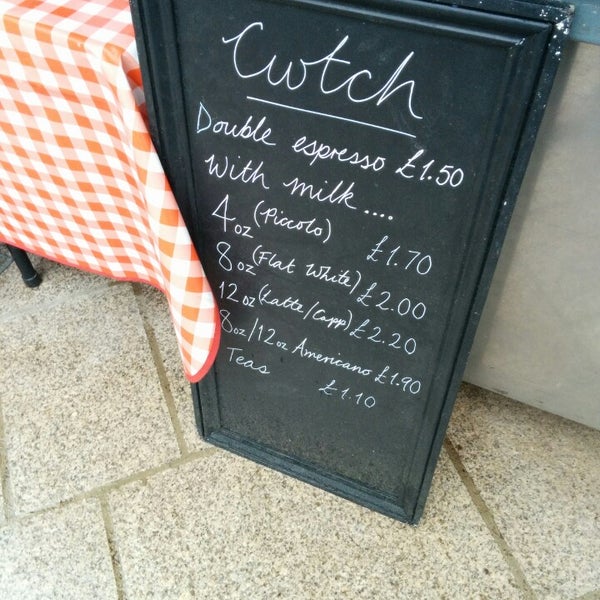 Cwtch
Double espresso £1.50
With milk....
4oz (Piccolo) £1.70
8oz (Flat White) £2.00
12oz (Latte/Capp) £2.20
8oz/12oz Americano £1.90
Teas £1.10